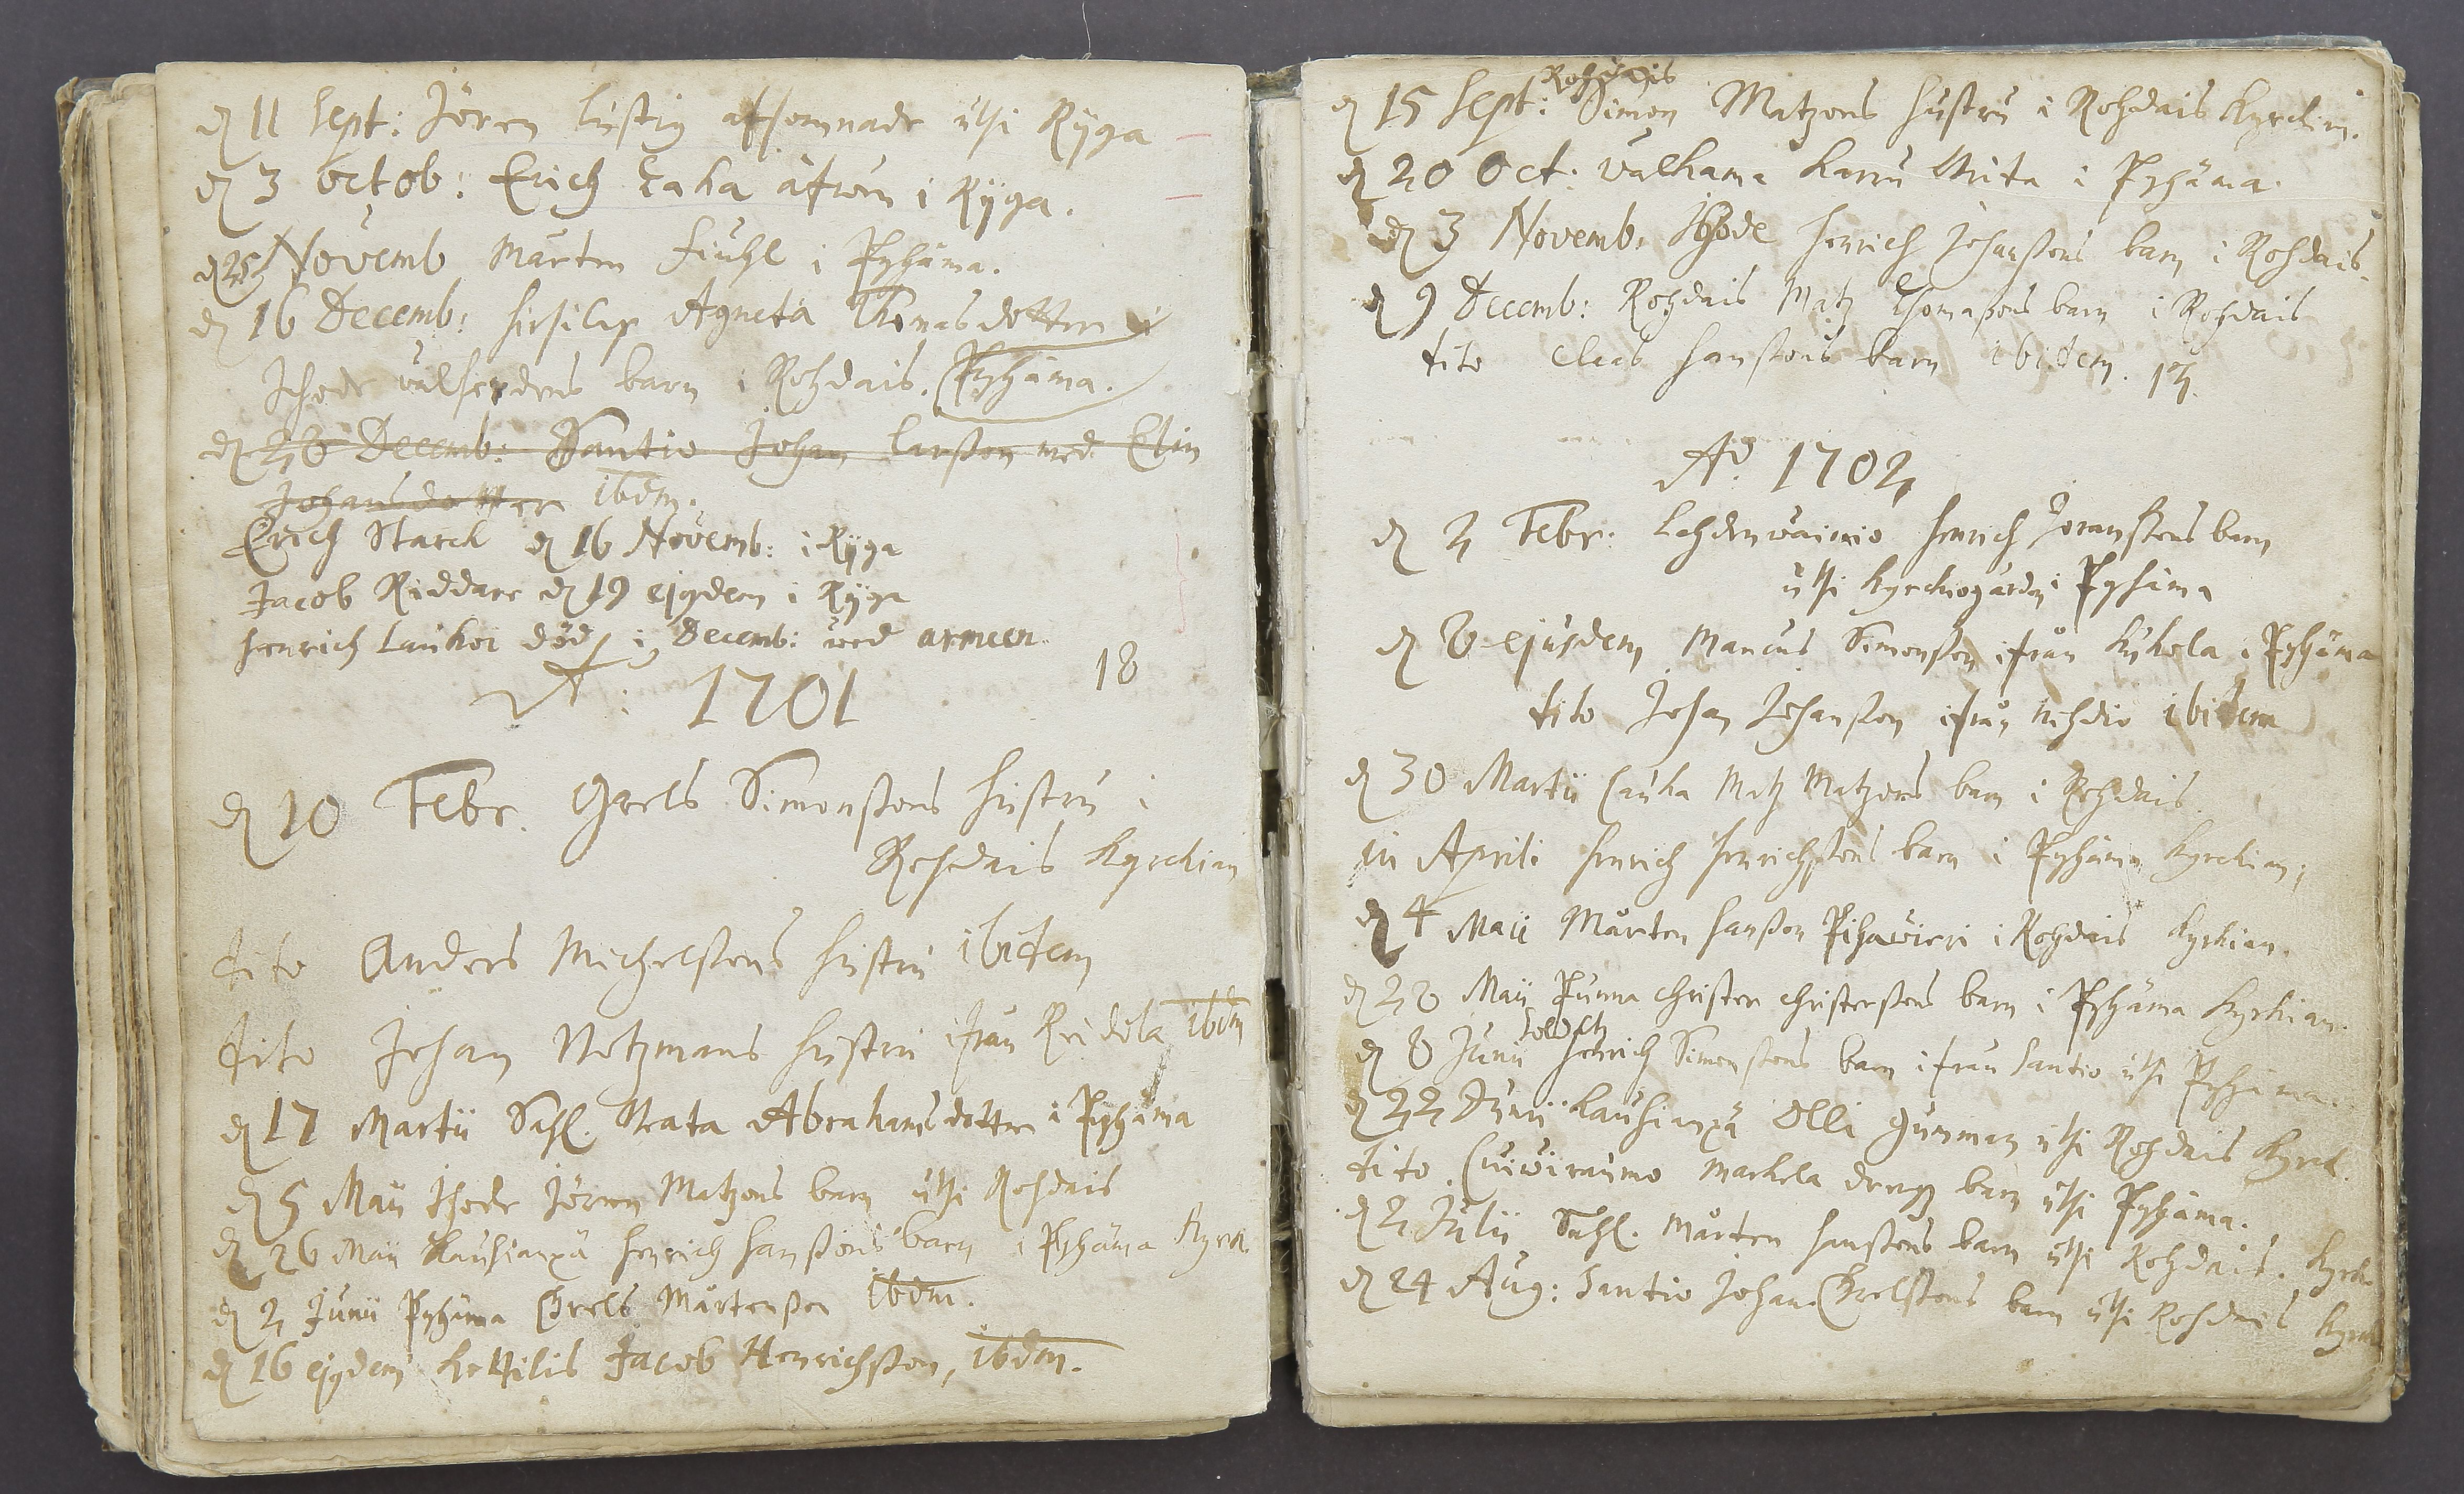 d 11 Sept: Jören Lustig afsomnade uthi Rÿga
d 3 octob: Erich Laka äfwen i Rÿga.
d 25 Novemb Mårten Fiuhl i Pyhäma.
d 16 Decemb: Agneta Thomasdotter i
Ihode barn i Rohdais. Pyhäma.
d 26 Decemb: Santio Johan Larsson med Elin
Johansdotter ibdm.
Erich Starck d 16 Novemb: i Rÿga
Jacob Riddare d 19 ejgdem i Rÿga
Henrich Laukoi död i Decemb: wed armeen
18
Ao: 1701
d 10 Febr. Grels Simonssons hustru i
Rohdais kyrckian
dito Anders Michelssons hustru ibidem
dito Johan Notzmans hustru ifrån Reidila ibdm
d 17 Martii Sahl. Beata Abrahamsdotter i Pyhäma
d 5 Maii Ihode Jören Matzons barn uthi Rohdais
d 26 Maii Kauhianpä Henrich Hanssons barn i Pyhäma Kyrck.
d 2 Junii Pyhäma Grels Mårtensson ibdm.
d 16 ejgdem Kettilis Jacob Henrichsson, ibdm.
Rohdais
d 15 Sept: Simon Matzons hustru i Rohdais Kyrckian.
d 20 Oct: Walkama Karru i Pyhäma.
d 3 Novemb. Ihode Henrich Johanssons barn i Rohdais.
d 9 Decemb: Rohdais Matz Thomassons barn i Rohdais
dito Clas Hanssons barn ibidem.
Ao. 1702
d 2 Febr. Lahdenwainio Henrich Joranssons barn
uthi kyrckiogården i Pyhäma
d 8 ejusdem Marcus Simonsson ifrån Kukola i Pyhäma
dito Johan Johansson ifrån ibidem
d 30 Martii Cauka Matz Matzons barn i Rohdais
in Aprili Henrich Henrichssons barn i Pyhäma kyrckian,
d 4 Maii Mårten Hansson Pihawieri i Rohdais kyrkian.
d 28 Maii Punna Christer Christerssons barn i Pyhäma Kyrkian.
Soldat
d 8 Junii Henrich Simonssons barn ifrån Santio uthi Pyhäma.
d 22 Junii Kauhianpä Olli Gunman uthi Rohdais kyrck.
dito Cuiwiraumo Markela dreng barn uthi Pyhäma.
d 2 Julii Sahl. Mårten Hanssons barn uthi Rohdais. kyrck
d 24 Aug: Santio Johan Grelssons barn uthi Rohdais kyrck